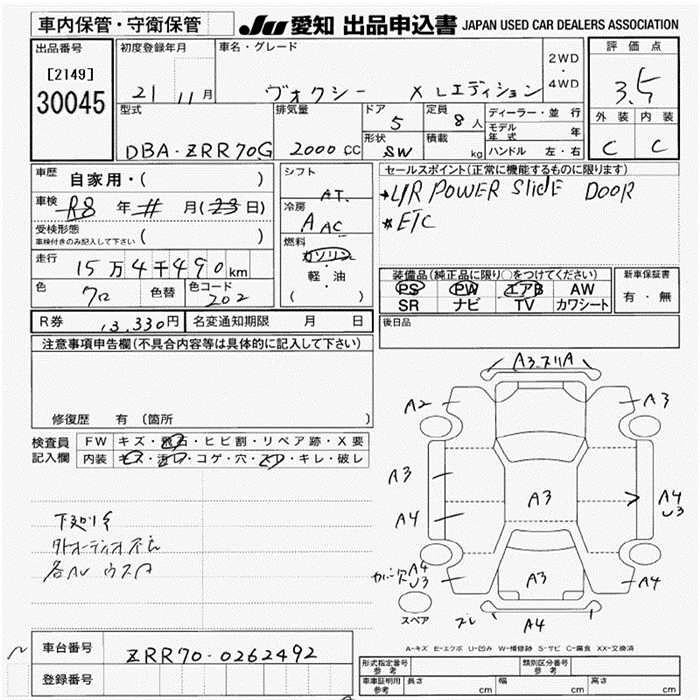 車内保管・守衛保管
JU 愛知 出品申込書 JAPAN USED CAR DEALERS ASSOCIATION
出品番号
[2149]
30045
初度登録年月
21 11月
車名・グレード
ヴォクシー X Lエディション
2WD
・
4WD
評価点
3.5
外装 内装
C C
型式
DBA-ZRR70G
排気量
2000CC
ドア
5
形状
SW
定員
8人
積載
kg
ディーラー・並行
モデル年式 年
ハンドル 左・右
車歴 自家用・( )
車検 R8年 月(23日)
受検形態
車検付きのみ記入して下さい ( )
走行 15万4千490km
色 クロ 色替 色コード 202
シフト
AT
冷房
AAC
燃料
ガソリン
軽・油
( )
セールスポイント(正常に機能するものに限ります)
L/R POWER SlidE DOOR
ETC
装備品(純正品に限り〇をつけてください)
PS PW エアB AW
SR ナビ TV カワシート
新車保証書
有・無
R券 13,330円 名変通知期限 月 日
後日品
注意事項申告欄(不具合内容等は具体的に記入して下さい)
修復歴 有 (箇所 )
検査員
記入欄
FW キズ・飛石・ヒビ割・リペア跡・X要
内装 キズ・汚レ・コゲ・穴・スレ・キレ・破レ
A2
A3
A3
A4
A3
A4
U3
A4
U3
A3
A4
スペア
A4
A-キズ E-エクボ U-凹み W-補修跡 S-サビ C-腐食 XX-交換済
車台番号 ZRR70-0262492
登録番号
形式指定番号
参考
類別区分番号
参考
車庫証明用
参考
長さ cm 幅 cm 高さ cm